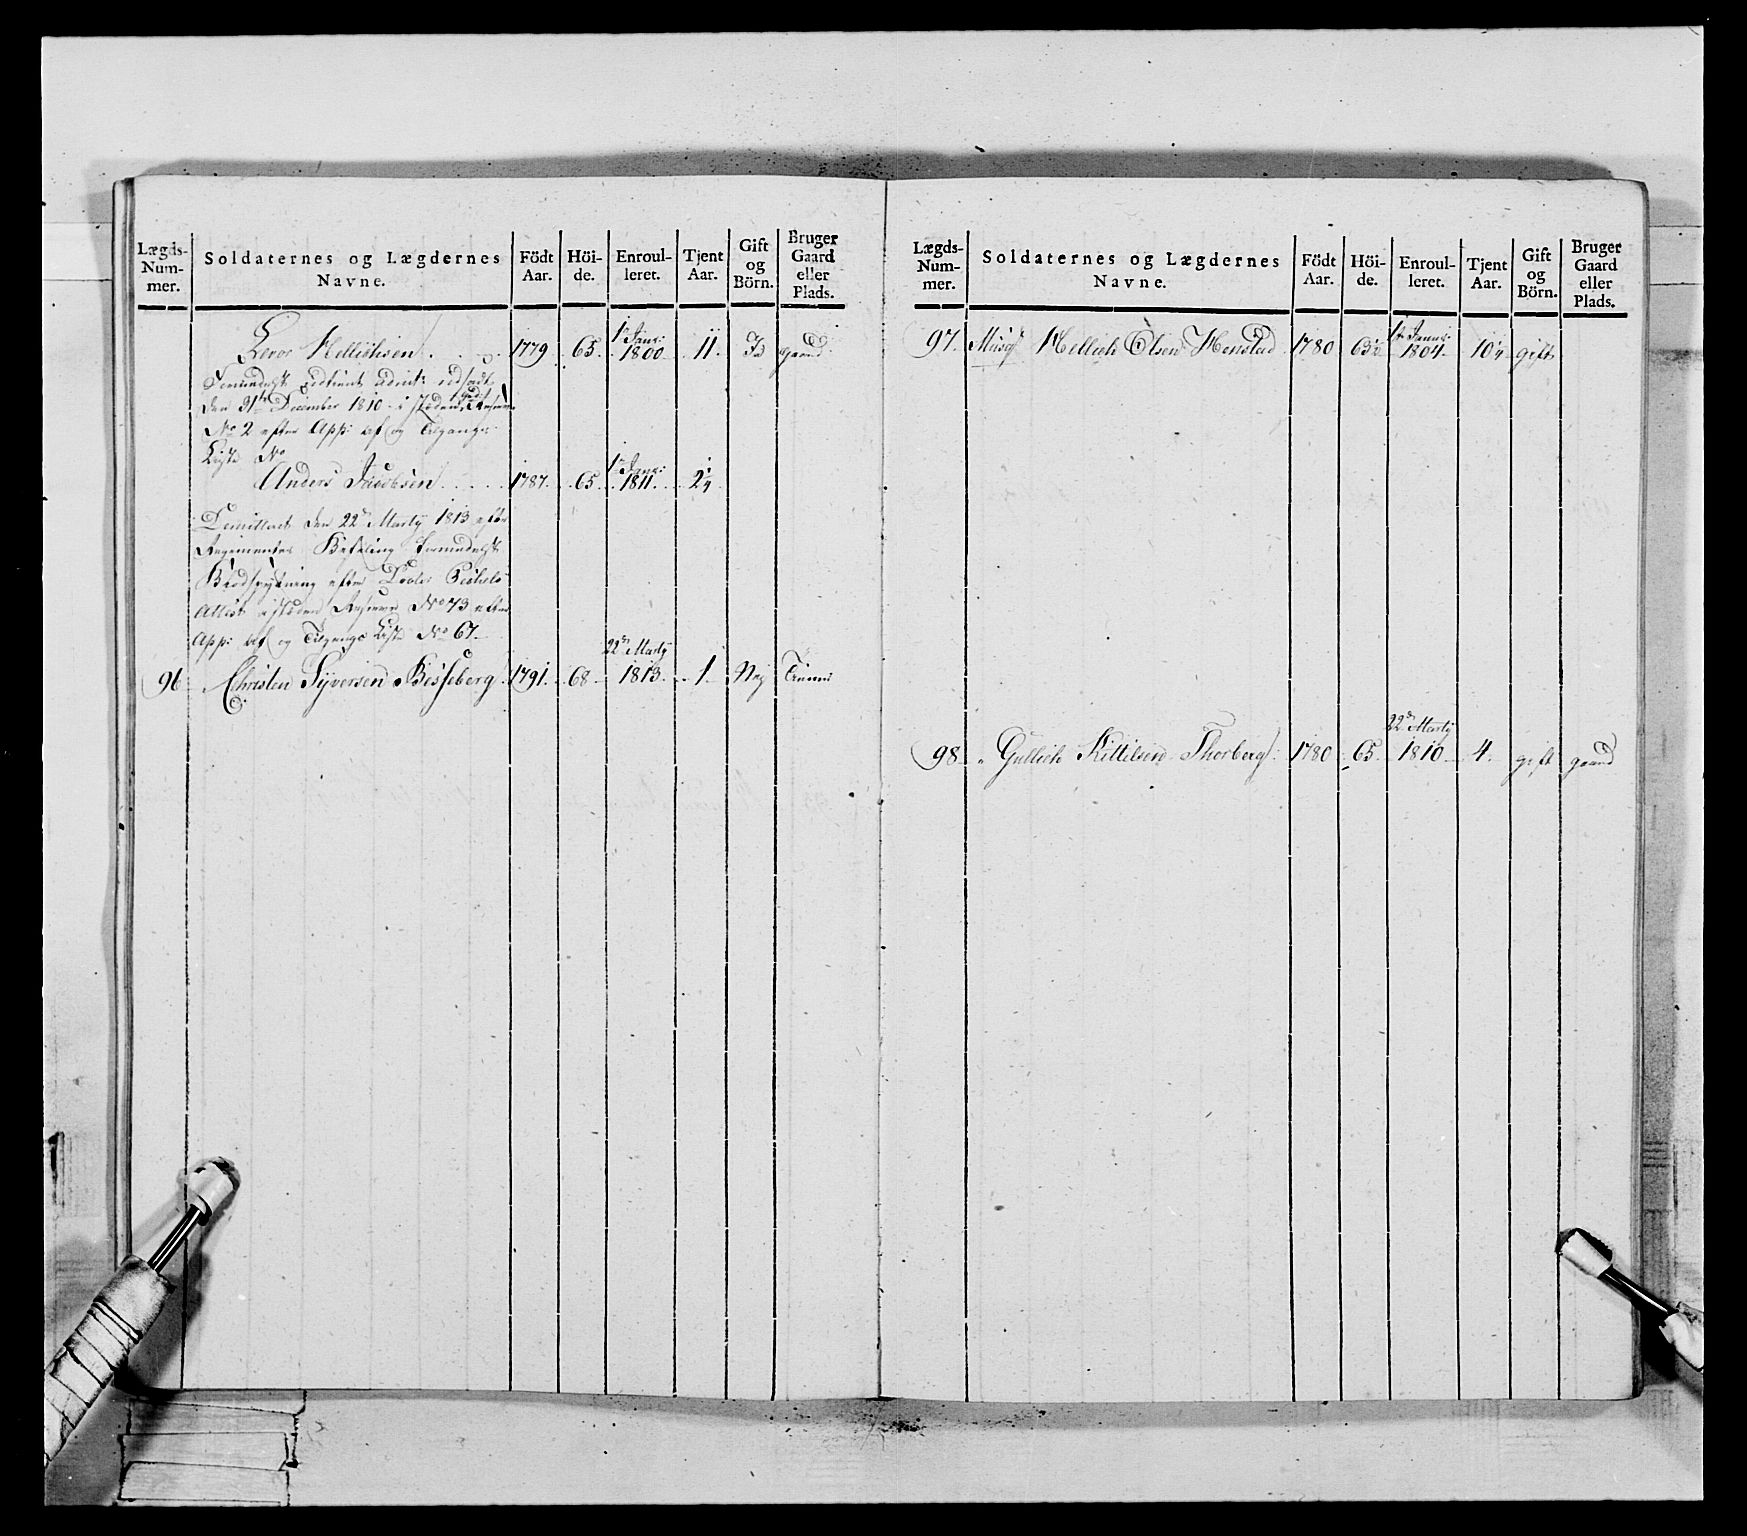 Lægds-Num-mer. Soldaternes og Lægdernes Navne. Födt Aar. Höi-de. Enroul-leret. Tjent Aar. Gift og Börn. Bruger Gaard eller Plads.
Hellichsen 1779 65 1ste Janr: 1800 11 Ja gaard
udtient
den 31te December 1810 i steden
No 2 efter App: af og Tilgangs
Liste No
Anders Jacobsen 1787 65 1ste Janr: 1811 2 1/4
Demitteret den 22de Martÿ 1813 efter
Regimentets Befaling formedelst
Blodspytning efter
Attest i steden Reserve No 73 efter
App: af og Tilgangs Liste No 67
96 Christen Syversen Besseberg 1791 68 22de Martÿ 1813 1 Nej
Lægds-Num-mer. Soldaternes og Lægdernes Navne. Födt Aar. Höi-de. Enroul-leret. Tjent Aar. Gift og Börn. Bruger Gaard eller Plads.
97. Musq Hellich Olsen Henstad 1780 63 1/2 1ste Janr: 1804 10 1/4 gift
98 Gullich Kittilsen Thorberg 1780 65 22de Martÿ 1810 4 gift gaard